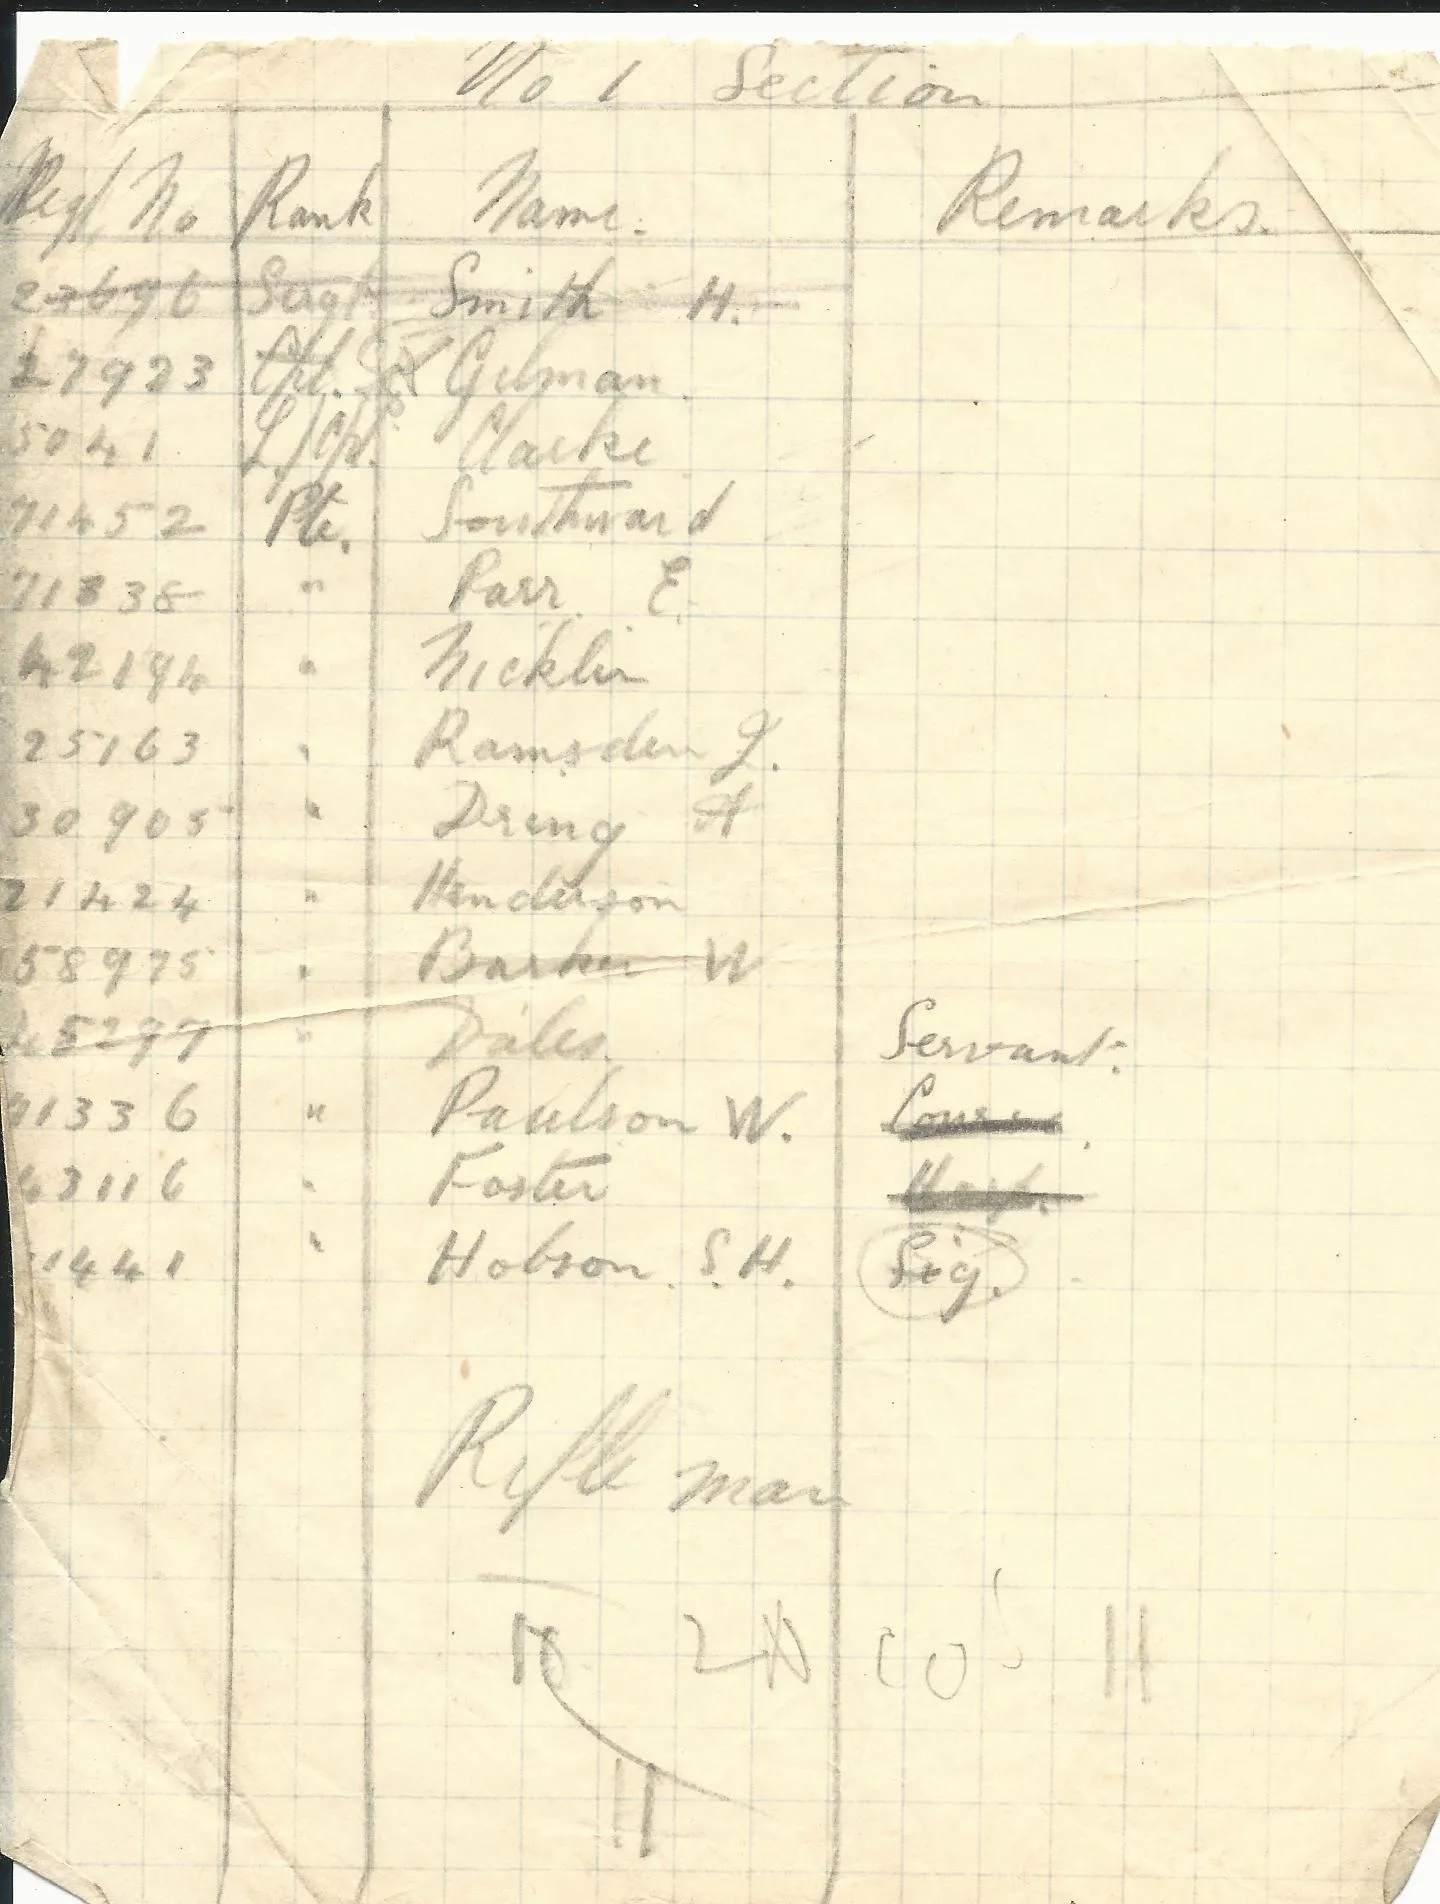 No 1 Section
Reg/ No Rank Name. Remarks.
23696 Sergt Smith H.
27923 Cpl. Gelman.
5041 L/Cpl. Clarke
71452 Pte. Southward
71838 " Parr. E.
42194 " Nicklin
25163 " Ramsden J.
30905 " Dring A
21424 " Henderson
58975 " Barker W
45297 " Dales. Servant.
71336 " Paulson W.
43116 " Foster Hosp.
1441 " Hobson. S.H. Sig.
Rifle man
2 N CO's 11
11